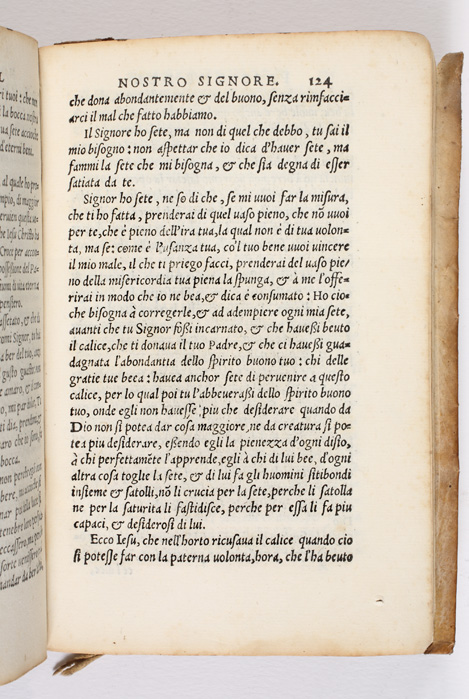 L
ri tuoi: che non
la bocca nostra
tua sete accioche
d'eterni bena.
al quale ho pro
mpio, di maggior
che Iesu Christo ha
Croce per accon-
NOSTRO SIGNORE. 124
che dona abondantemente & del buono, senza rimfacci-
arci il mal che fatto habbiamo.
Il Signore ho sete, ma non di quel che debbo, tu sai il
mio bisogno: non aspettar che io dica d'hauer sete, ma
fammi la sete che mi bisogna, & che sia degna di esser
satiata da te.
Signor ho sete, ne so di che, se mi vuoi far la misura,
che ti ho fatta, prenderai di quel uaso pieno, che nõ vuoi
per te, che è pieno dell'ira tua, la qual non è di tua uolon-
ta, ma se: come è l'usanza tua, co'l tuo bene vuoi uincere
il mio male, il che ti priego facci, prenderai del uaso pie-
no della misericordia tua piena la spunga, & à me l'offe-
rirai in modo che io ne bea, & dica è consumato: Ho cio-
che bisogna à corregerle, & ad adempiere ogni mia sete,
auanti che tu Signor fossi incarnato, & che hauessi beuto
il calice, che ti donaua il tuo Padre, & che ci hauessi gua-
dagnata l'abondantia dello spirito buono tuo: chi delle
gratie tue beca: hauea anchor sete di peruenire a questo
calice, per lo qual poi tu l'abbeuerassi dello spirito buono
tuo, onde egli non hauesse piu che desiderare quando da
Dio non si potea dar cosa maggiore, ne da creatura si po-
tea piu desiderare, essendo egli la pienezza d'ogni disio,
à chi perfettamẽte l'apprende, egli à chi di lui bee, d'ogni
altra cosa toglie la sete, & di lui fa gli huomini sitibondi
insieme & satolli, nõ li crucia per la sete, perche li satolla
ne per la saturita li fastidisce, perche per essa li fa piu
capaci, & desiderosi di lui.
Ecco Iesu, che nell'horto ricusaua il calice quando cio
si potesse far con la paterna volonta, hora, che l'ha beuto